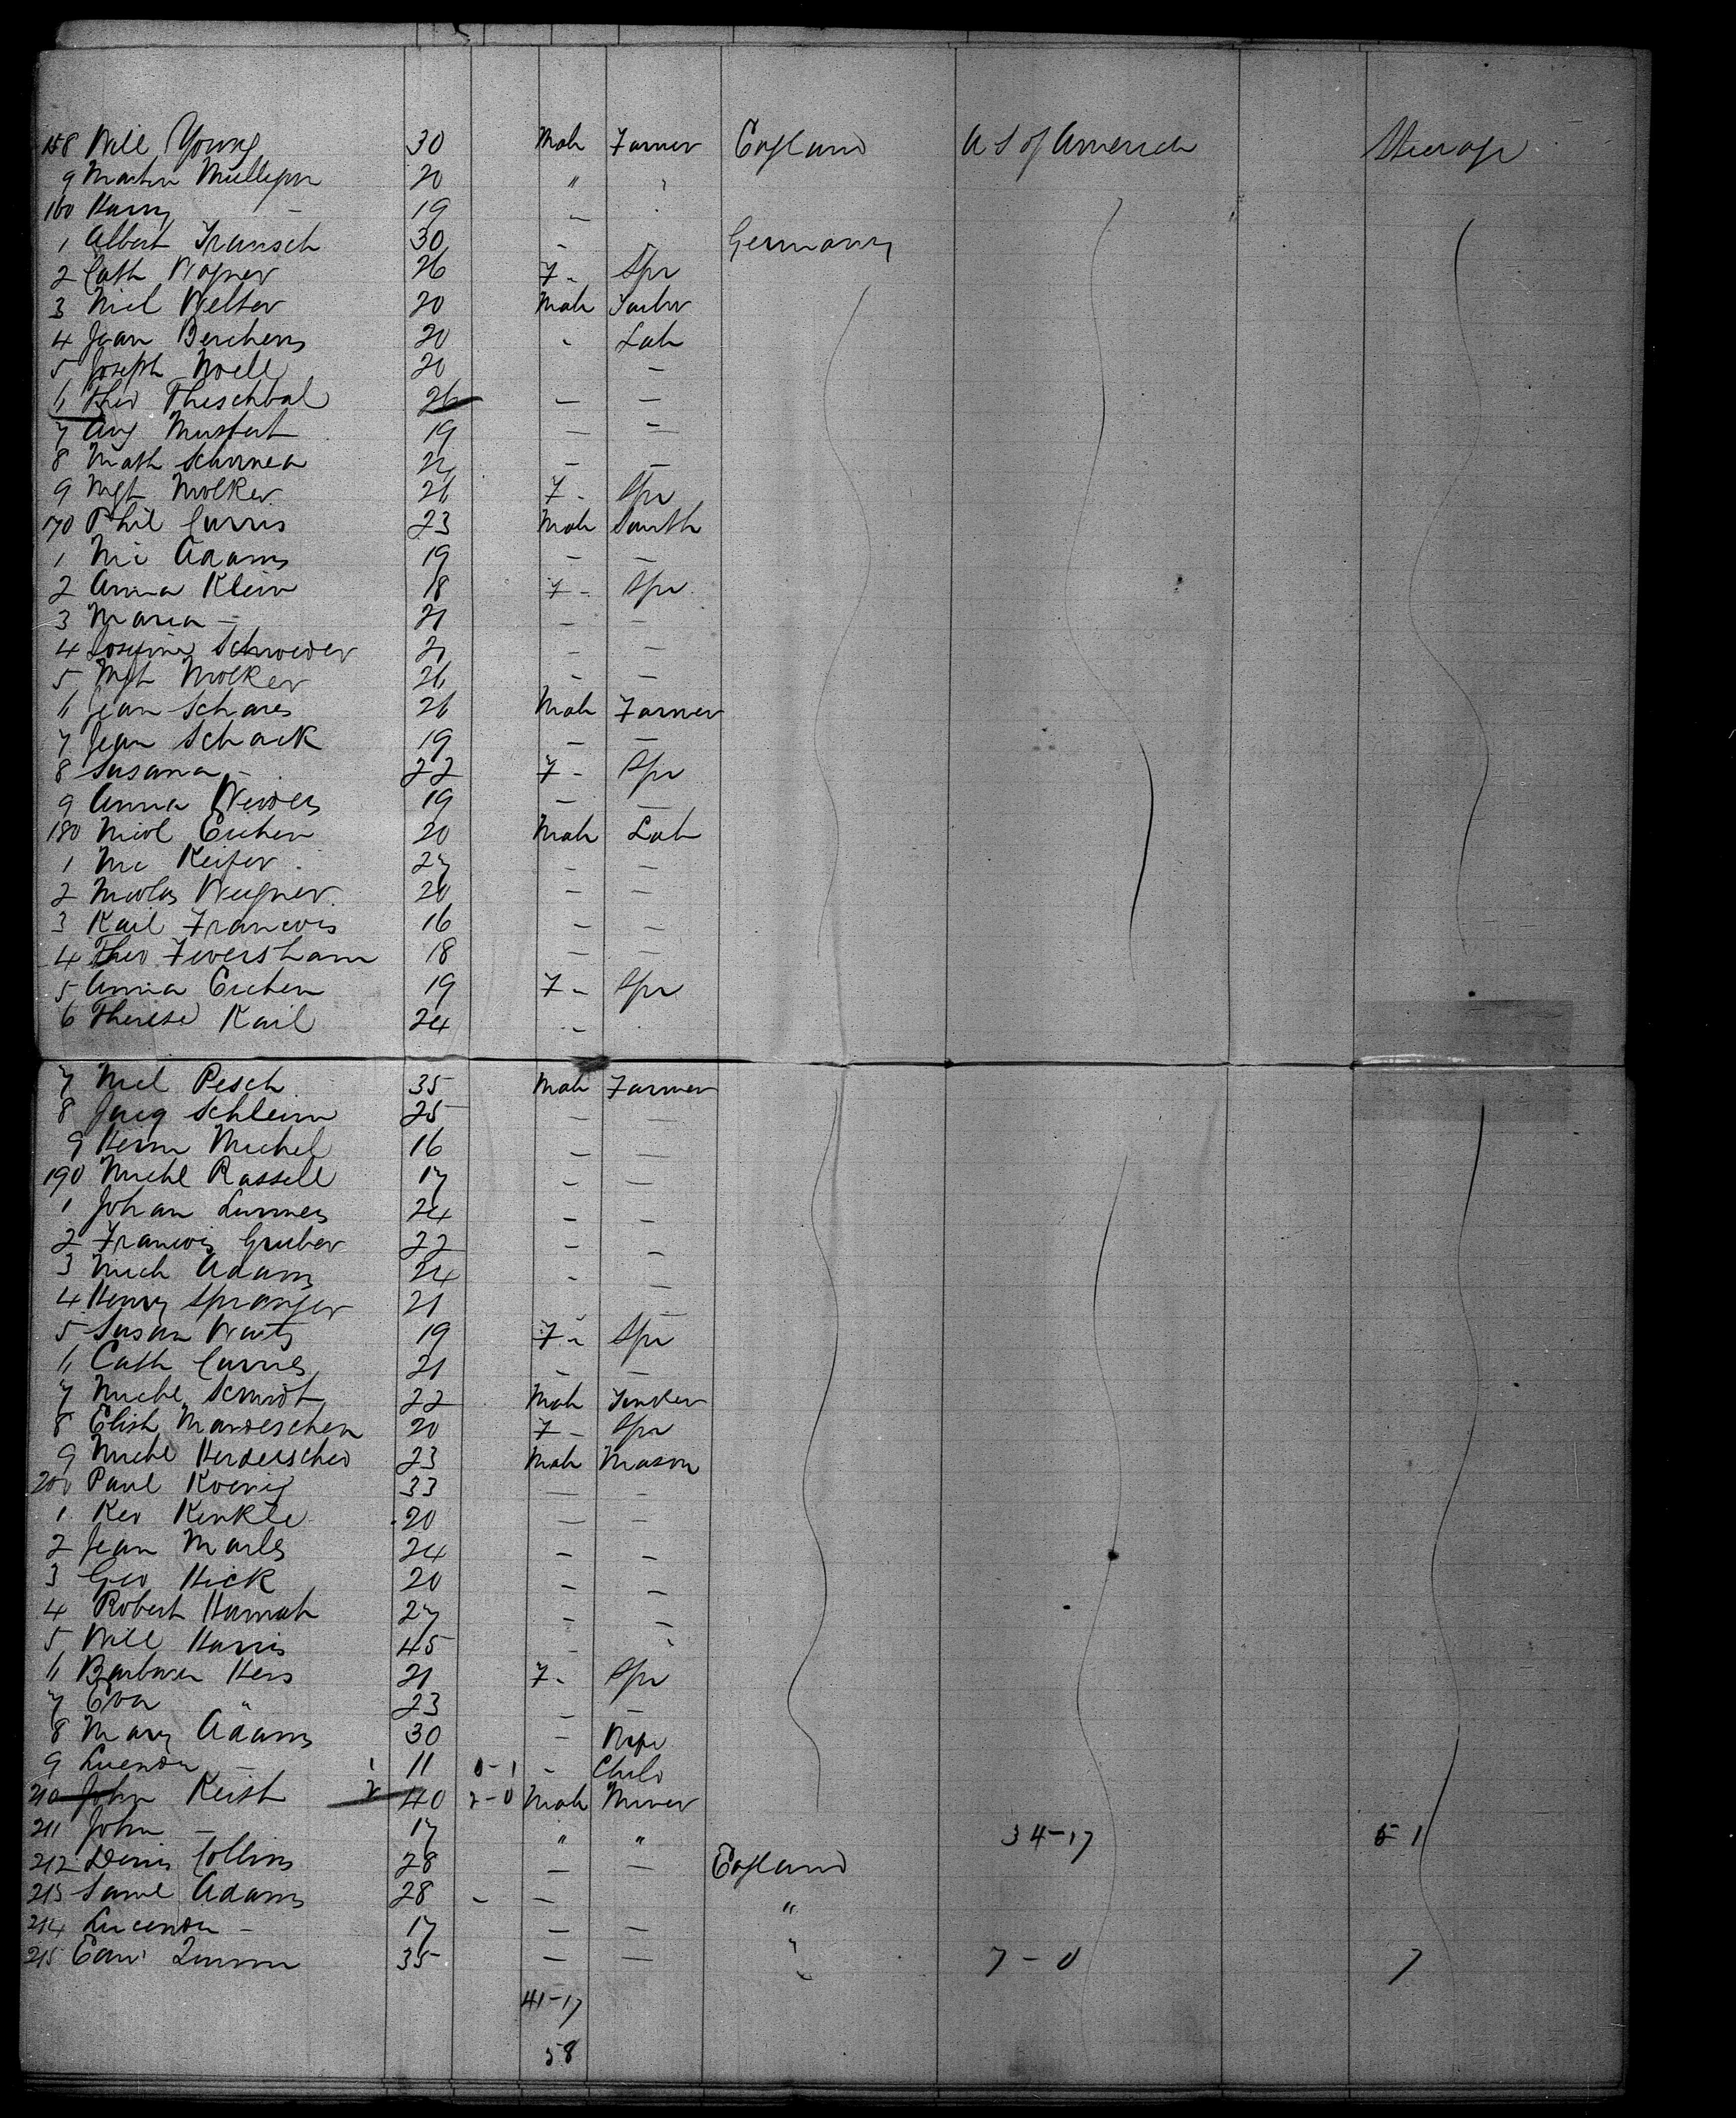 158 Will Young 30 Male Farmer England U S of America Steerage
9 Martin Mulligan 20 " "
160 Harry — 19 —
1 Albert Fransch 30 — — Germany
2 Cath Wagner 26 F — Spr
3 Nicl Welter 20 Male Tailor
4 Jean Berchens 20 - Lab
5 Joseph Noell 20 —
6 Theo Theschbal 26 — —
7 Aug Musfert 19 — —
8 Math 22 — —
9 Mgt Molker 26 F - Spr
170 Phil Curris 23 Male Smith
1 Nic Adams 19 — —
2 Anna Klein 18 F - Spr
3 Maria — 21 — —
4 Josefine Schroeder 21 — —
5 Mgt Molker 26 — —
6 Jean Schares 26 Male Farmer
7 Jean Schack 19 — —
8 Susana — 22 F - Spr
9 Anna 19 — —
180 Nicol Eichen 20 Male Lab
1 Nic Keifer 27 — —
2 Nicolas Wagner 20 — —
3 Karl Francois 16 — —
4 Theo Feversham 18 — —
5 Anna Eichen 19 F - Spr
6 Therese Kail 24 -
7 Nicl Pesch 35 Male Farmer
8 Jacq Schleim 25 — —
9 Herm Michel 16 — —
190 Michl Rassell 17 — —
1 Johan Lummes 24 — —
2 Francois Gruber 22 — —
3 Mich Adams 24 - —
4 Henry Spranger 21 - —
5 Susan Wautz 19 F - Spr
6 Cath Curries 21 — —
7 Michl Schmidt 22 Male Tinker
8 Elish Manderschen 20 F - Spr
9 Michl Herderscheo 23 Male Mason
200 Paul Koenig 33 — -
1 Kev Kinkle 20 — —
2 Jean Marls 24 — —
3 Geo Hick 20 — —
4 Robert Hannah 27 — —
5 Will Harris 45 - "
6 Barbara Hess 21 F - Spr
7 Eva " 23 — —
8 Mary Adams 30 — Wife
9 Lucinda — 1 11 0-1 - Child
210 John Keish 2 40 2-0 Male Miner
211 John — 17 " " 34-17 51
212 Denis Collins 28 — — England
213 Saml Adams 28 - — "
214 Lucinda — 17 — — "
215 35 — — " 7-0 7
41-17
58